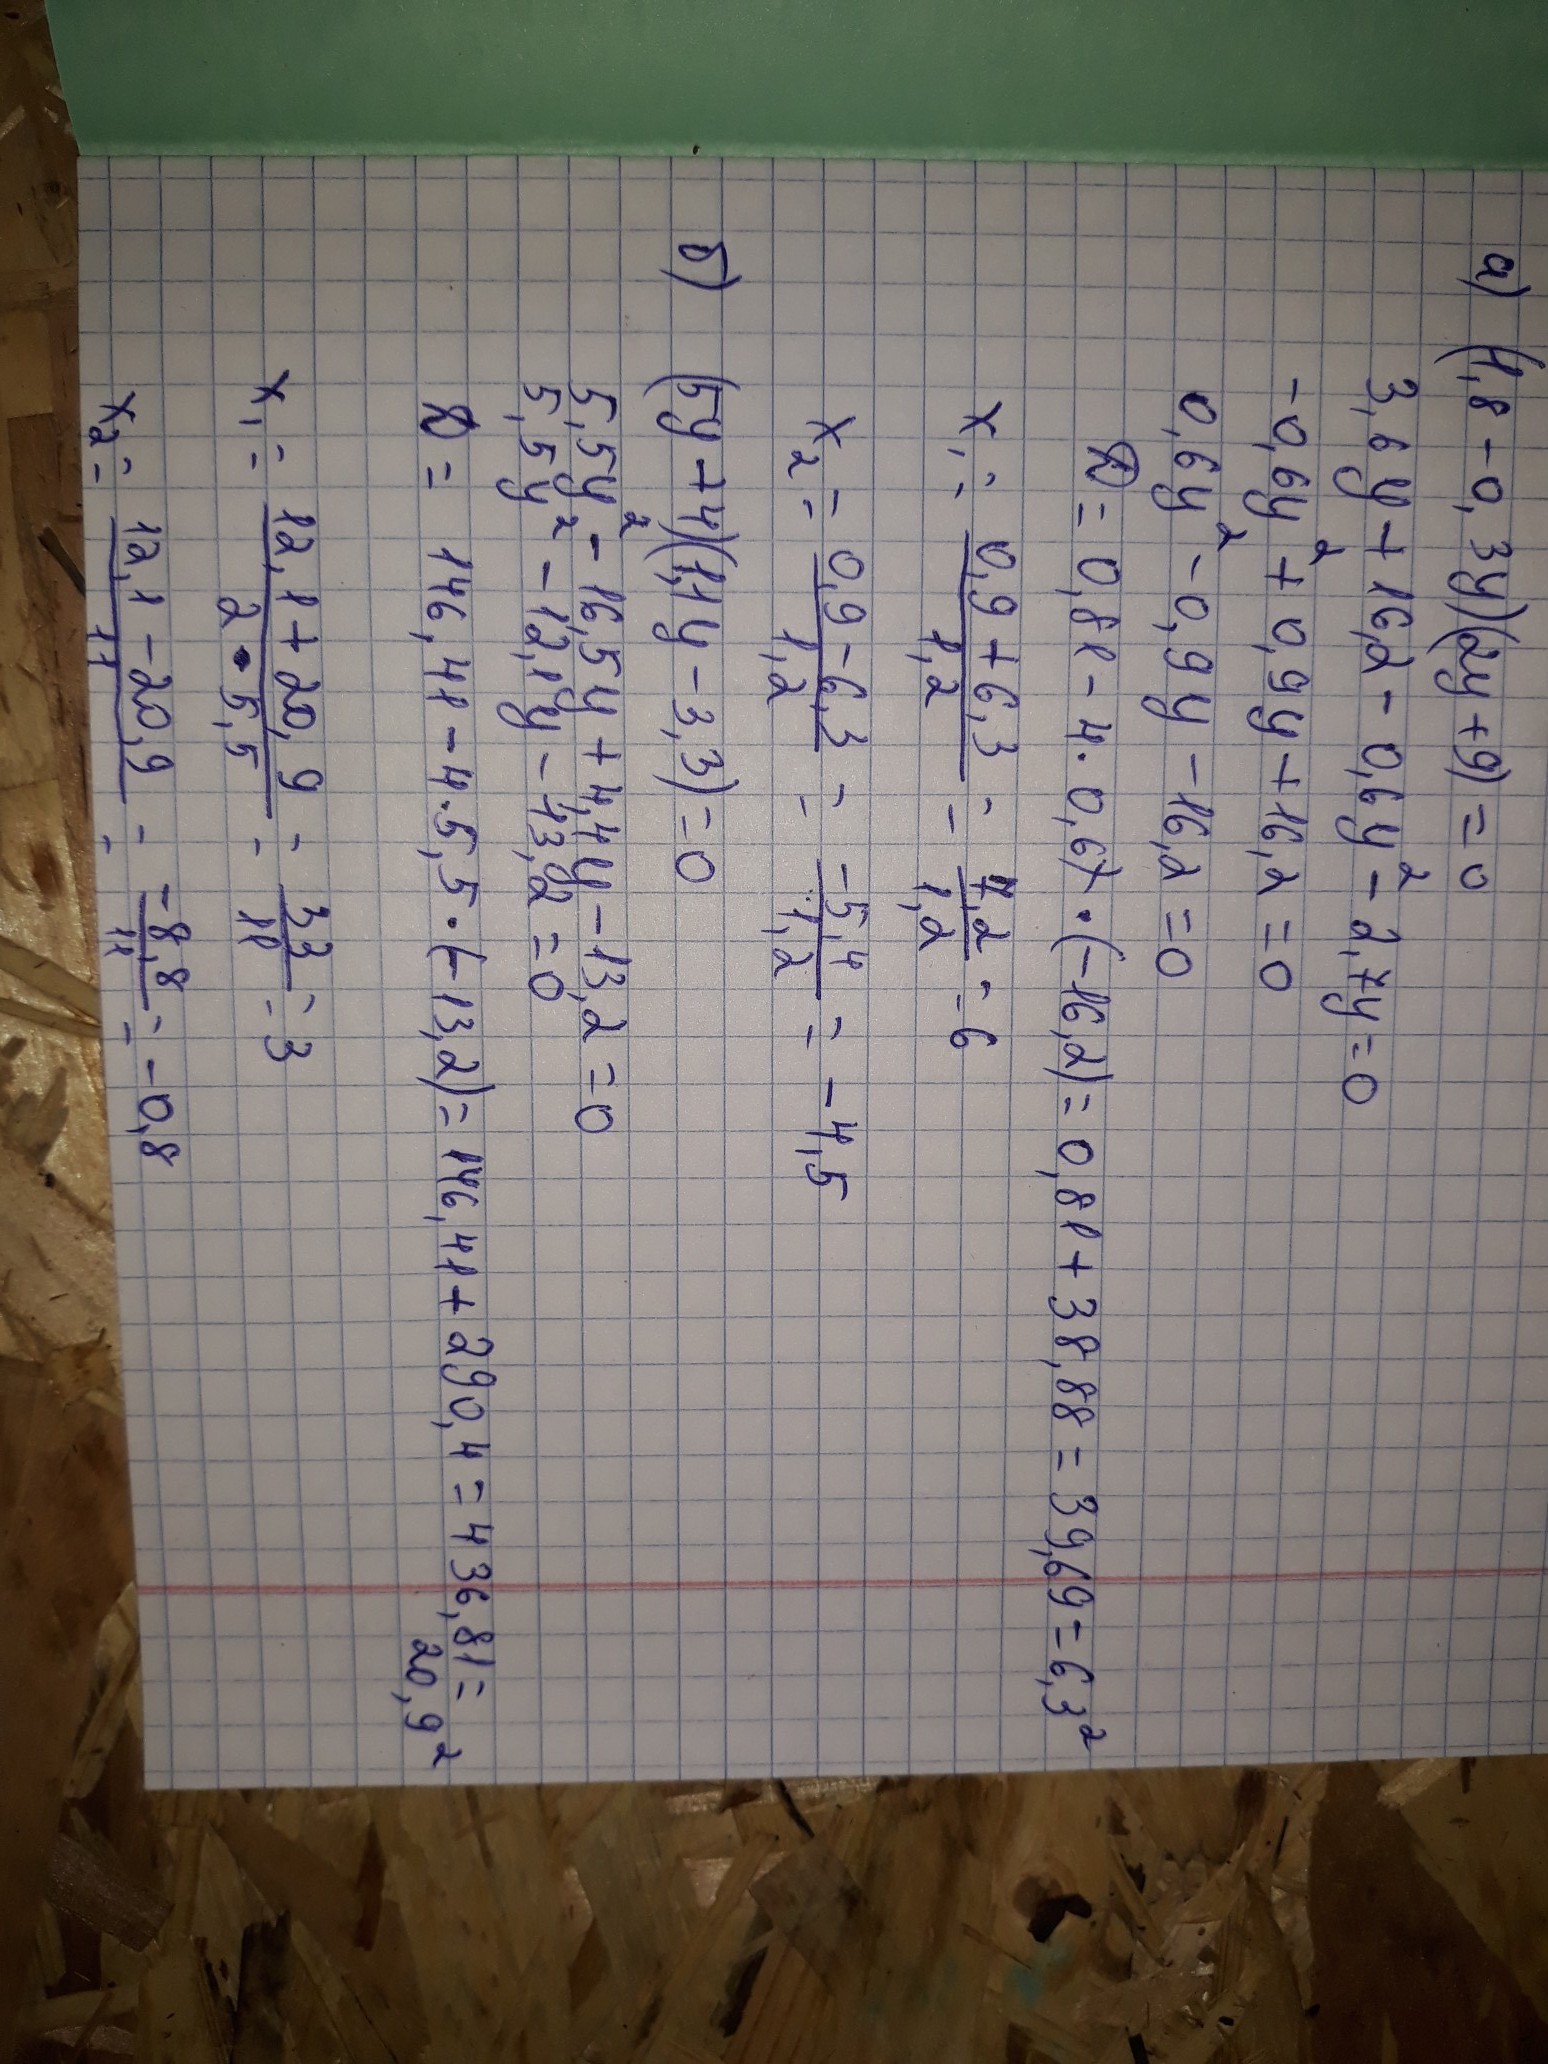 а) (1,8 - 0,3y)(2y + 9) = 0
3,6y + 16,2 - 0,6y² - 2,7y = 0
-0,6y² + 0,9y + 16,2 = 0
0,6y² - 0,9y - 16,2 = 0
D = 0,81 - 4 · 0,6 · (-16,2) = 0,81 + 38,88 = 39,69 = 6,3²
x₁ = (0,9 + 6,3)/1,2 = 7,2/1,2 = 6
x₂ = (0,9 - 6,3)/1,2 = -5,4/1,2 = -4,5
б) (5y + 4)(1,1y - 3,3) = 0
5,5y² - 16,5y + 4,4y - 13,2 = 0
5,5y² - 12,1y - 13,2 = 0
D = 146,41 - 4 · 5,5 · (-13,2) = 146,41 + 290,4 = 436,81 =
20,9²
x₁ = (12,1 + 20,9)/(2 · 5,5) = 33/11 = 3
x₂ = (12,1 - 20,9)/11 = -8,8/11 = -0,8